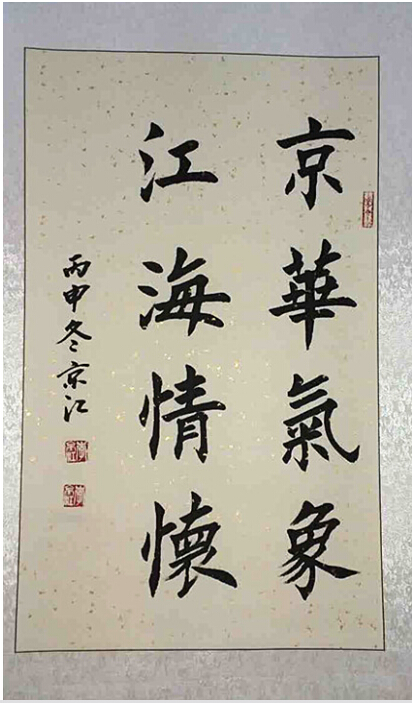 京華氣象
江海情懷
丙申冬京江